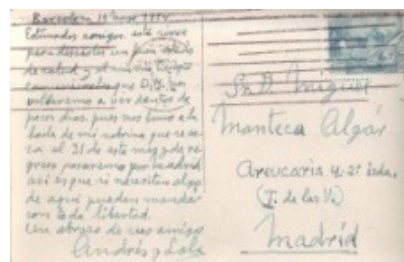 Barcelona 19 mayo 1954
Estimados amigos: esta sirve
para desearles un buen estado
de salud y al mismo tiempo
comunicarles que D. M. nos
volveremos a ver dentro de
pocos dias, pues nos vamos a la
boda de mi sobrina que se ca-
sa el 31 de este mes y de re-
greso pasaremos por Madrid
asi es que si necesitan algo
de aqui pueden mandar
con toda libertad.
Un abrazo de sus amigos
Andrés y Lola
Sr. D. Miguel
Manteca Algár
Araucaria 4. 2º izda.
(T. de las V.)
Madrid